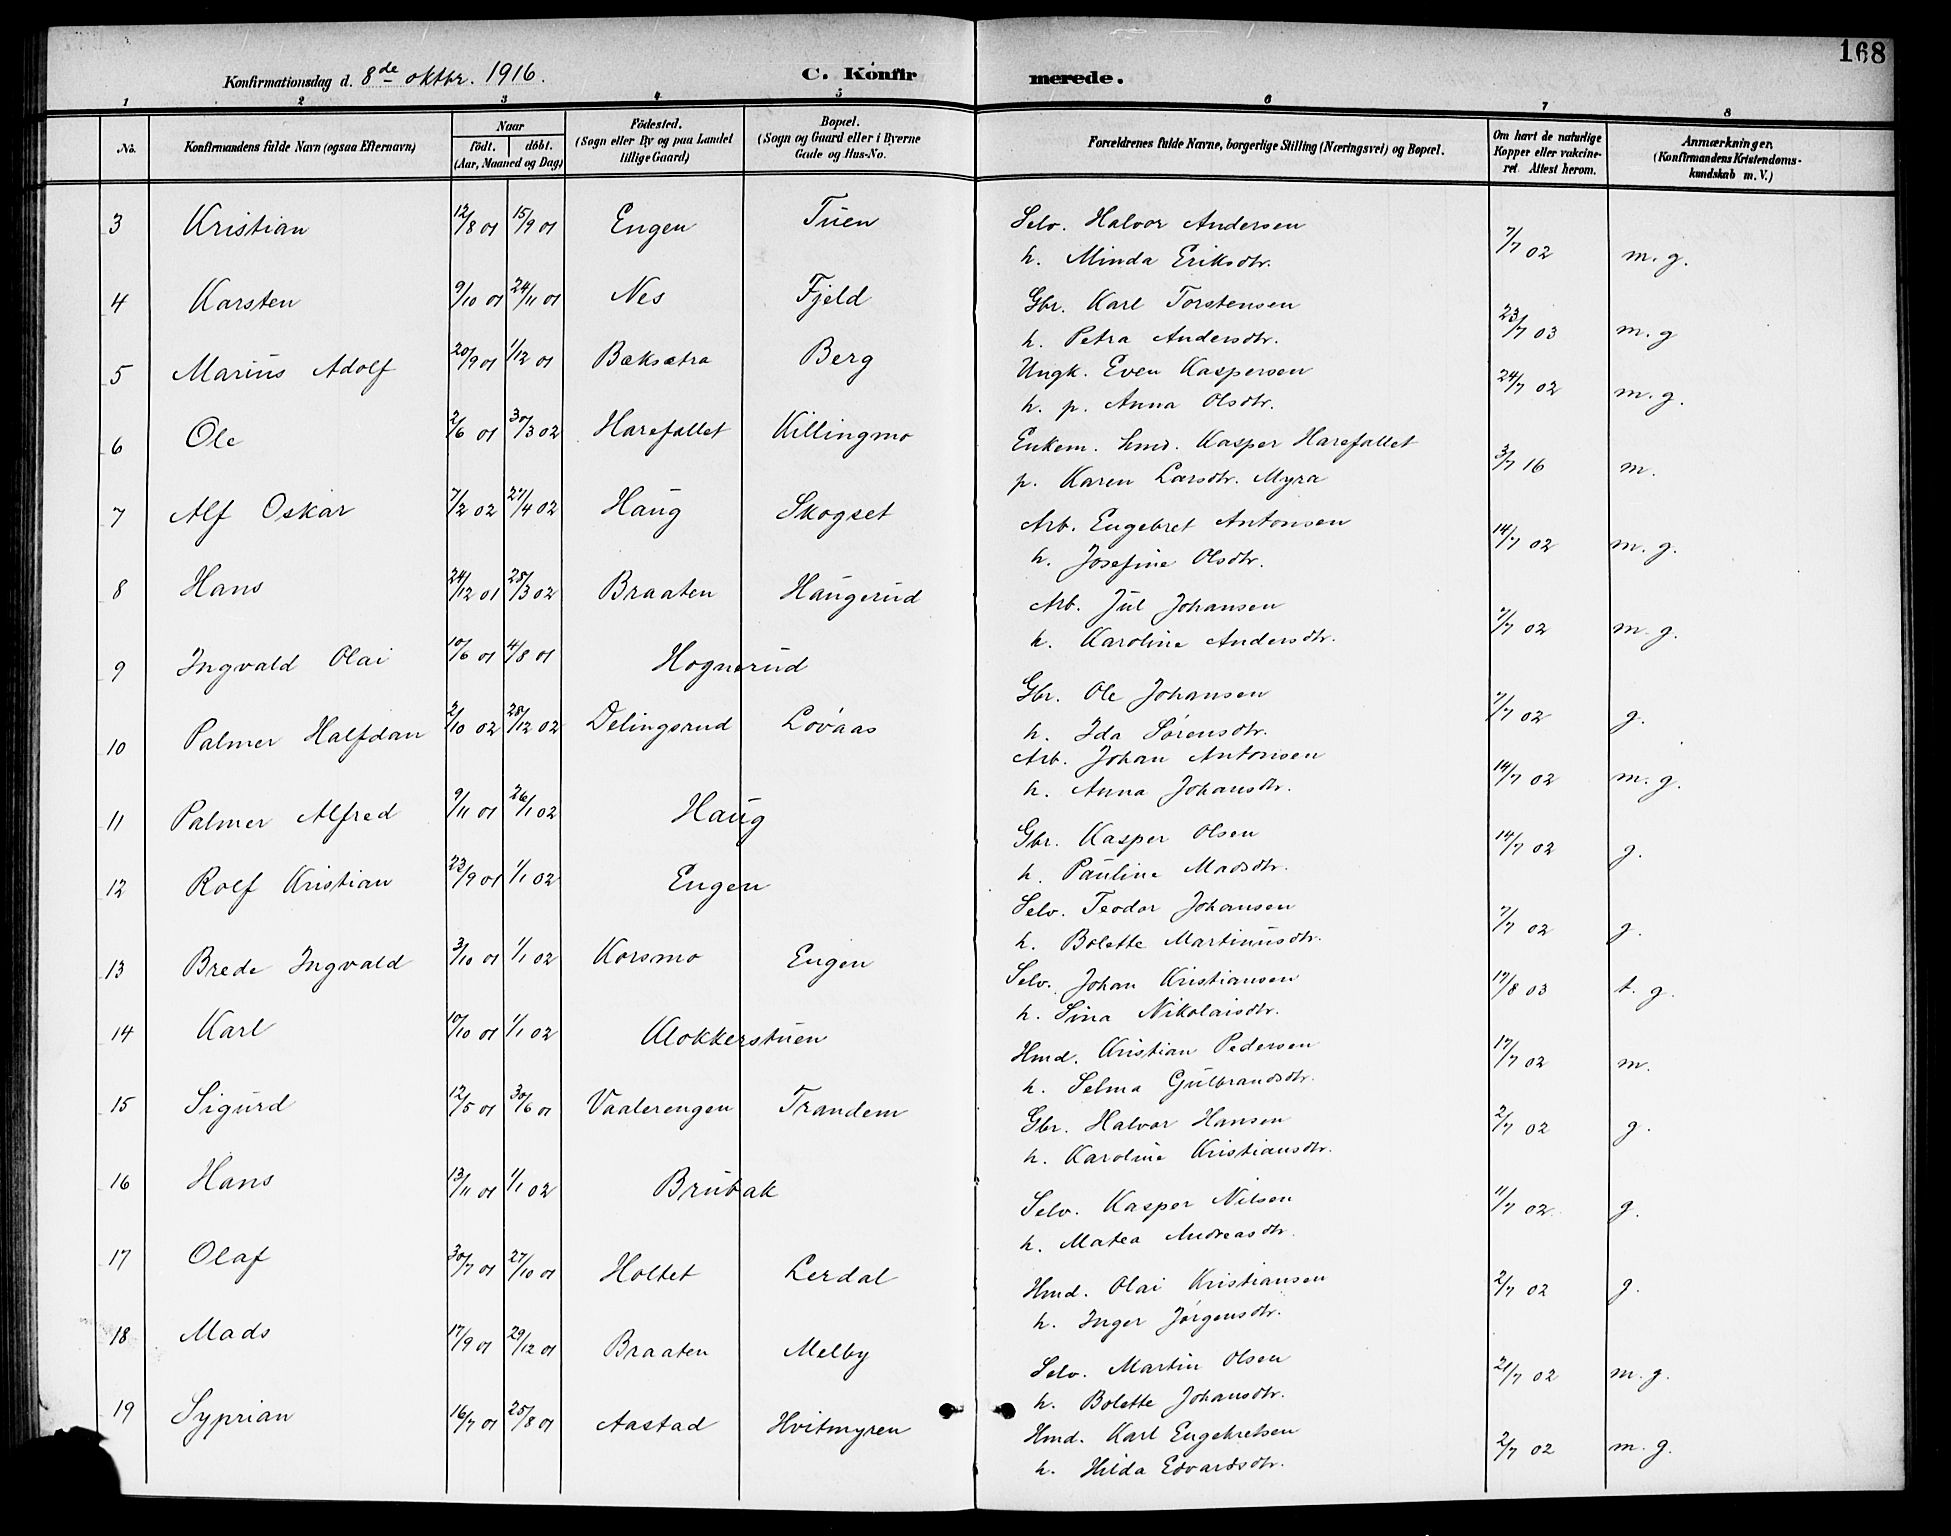 168
Konfirmationsdag d. 8de oktbr. 1916. C. Konfirmerede.
1 2 3 4 5 6 7 8
No. Konfirmandens fulde Navn (ogsaa Efternavn) Naar født. døbt. (Aar, Maaned og Dag) Fødested. (Sogn eller By og paa Landet tillige Gaard) Bopæl. (Sogn og Gaard eller i Byerne Gade og Hus-No. Forældrenes fulde Navne, borgerlige Stilling (Næringsvei) og Bopæl. Om havt de naturlige Kopper eller vakcineret. Attest herom. Anmærkninger. (Konfirmandens Kristendomskundskab m. V.)
3 Kristian 12/8 01 15/9 01 Engen Tuen Selv. Halvor Andersen 7/7 02 m. g.
h. Minda Eriksdtr.
4 Karsten 9/10 01 24/11 01 Nes Fjeld Gbr. Karl Torstensen 23/7 03 m. g
h. Petra Andersdtr.
5 Marius Adolf 20/9 01 1/12 01 Bæksætra Berg Ungk. Even Kaspersen 24/7 02 m. g.
h. p. Anna Olsdtr.
6 Ole 2/6 01 30/3 02 Harefallet Killingmo Enkem. hmd. Kasper Harefallet 3/7 16 m.
p. Karen Larsdtr. Myra
7 Alf Oskar 7/2 02 27/4 02 Haug Skogset Arb. Engebret Antonsen 14/7 02 m. g.
h. Josefine Olsdtr.
8 Hans 24/12 01 25/3 02 Braaten Haugerud Arb. Jul Johansen 7/7 02 m. g.
h. Karoline Andersdtr.
9 Ingvald Olai 10/6 01 4/8 01 Hognerud Gbr. Ole Johansen 7/7 02 g.
h. Ida Sørensdtr.
10 Palmer Halfdan 2/10 02 28/12 02 Delingsrud Løvaas Arb. Johan Antonsen 14/7 02 m. g.
h. Anna Johansdtr.
11 Palmer Alfred 9/11 01 26/1 02 Haug Gbr. Kasper Olsen 14/7 02 g.
h. Pauline Madsdtr.
12 Rolf Kristian 23/9 01 1/1 02 Engen Selv. Teodor Johansen 7/7 02 g.
h. Bolette Martinusdtr.
13 Brede Ingvald 3/10 01 1/1 02 Korsmo Engen Selv. Johan Kristiansen 17/8 03 t. g.
h. Sina Nikolaisdtr.
14 Karl 10/10 01 1/1 02 Klokkerstuen Hmd. Kristian Pedersen 17/7 02 m.
h. Selma Gulbrandsdtr.
15 Sigurd 12/5 01 30/6 01 Vaalerengen Trandem Gbr. Halvor Hansen 2/7 02 g.
h. Karoline Kristiansdtr.
16 Hans 13/11 01 1/1 02 Brubak Selv. Kasper Nilsen 11/7 02 g.
h. Matea Andreasdtr.
17 Olaf 30/7 01 27/10 01 Holtet Lerdal Hmd. Olai Kristiansen 2/7 02 g.
h. Inger Jørgensdtr.
18 Mads 17/9 01 29/12 01 Braaten Melby Selv. Martin Olsen 21/7 02 m. g.
h. Bolette Johansdtr.
19 Syprian 16/7 01 25/8 01 Aastad Hvitmyren Hmd. Karl Engebretsen 2/7 02 m. g.
h. Hilda Edvardsdtr.